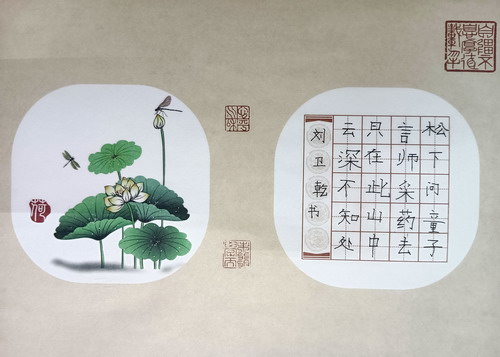 松下问童子
言师采药去
只在此山中
云深不知处
刘卫乾书
荷